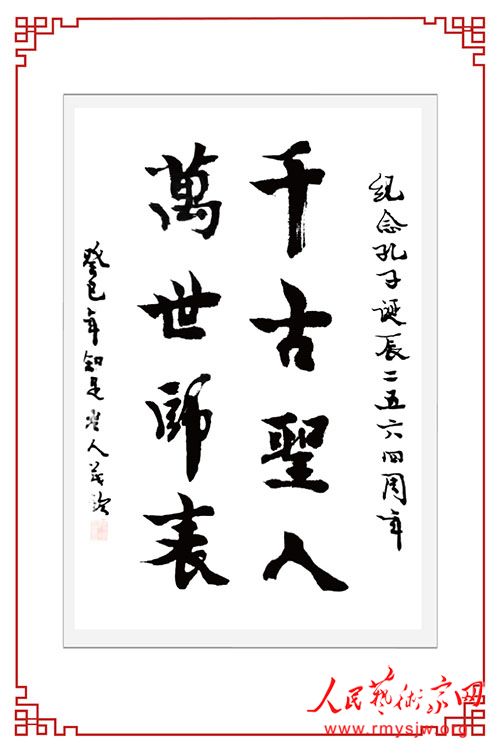 纪念孔子诞辰二五六四周年
千古聖人
萬世師表
癸巳年知足老人茂玲
人民藝術家网
www.rmysjw.org